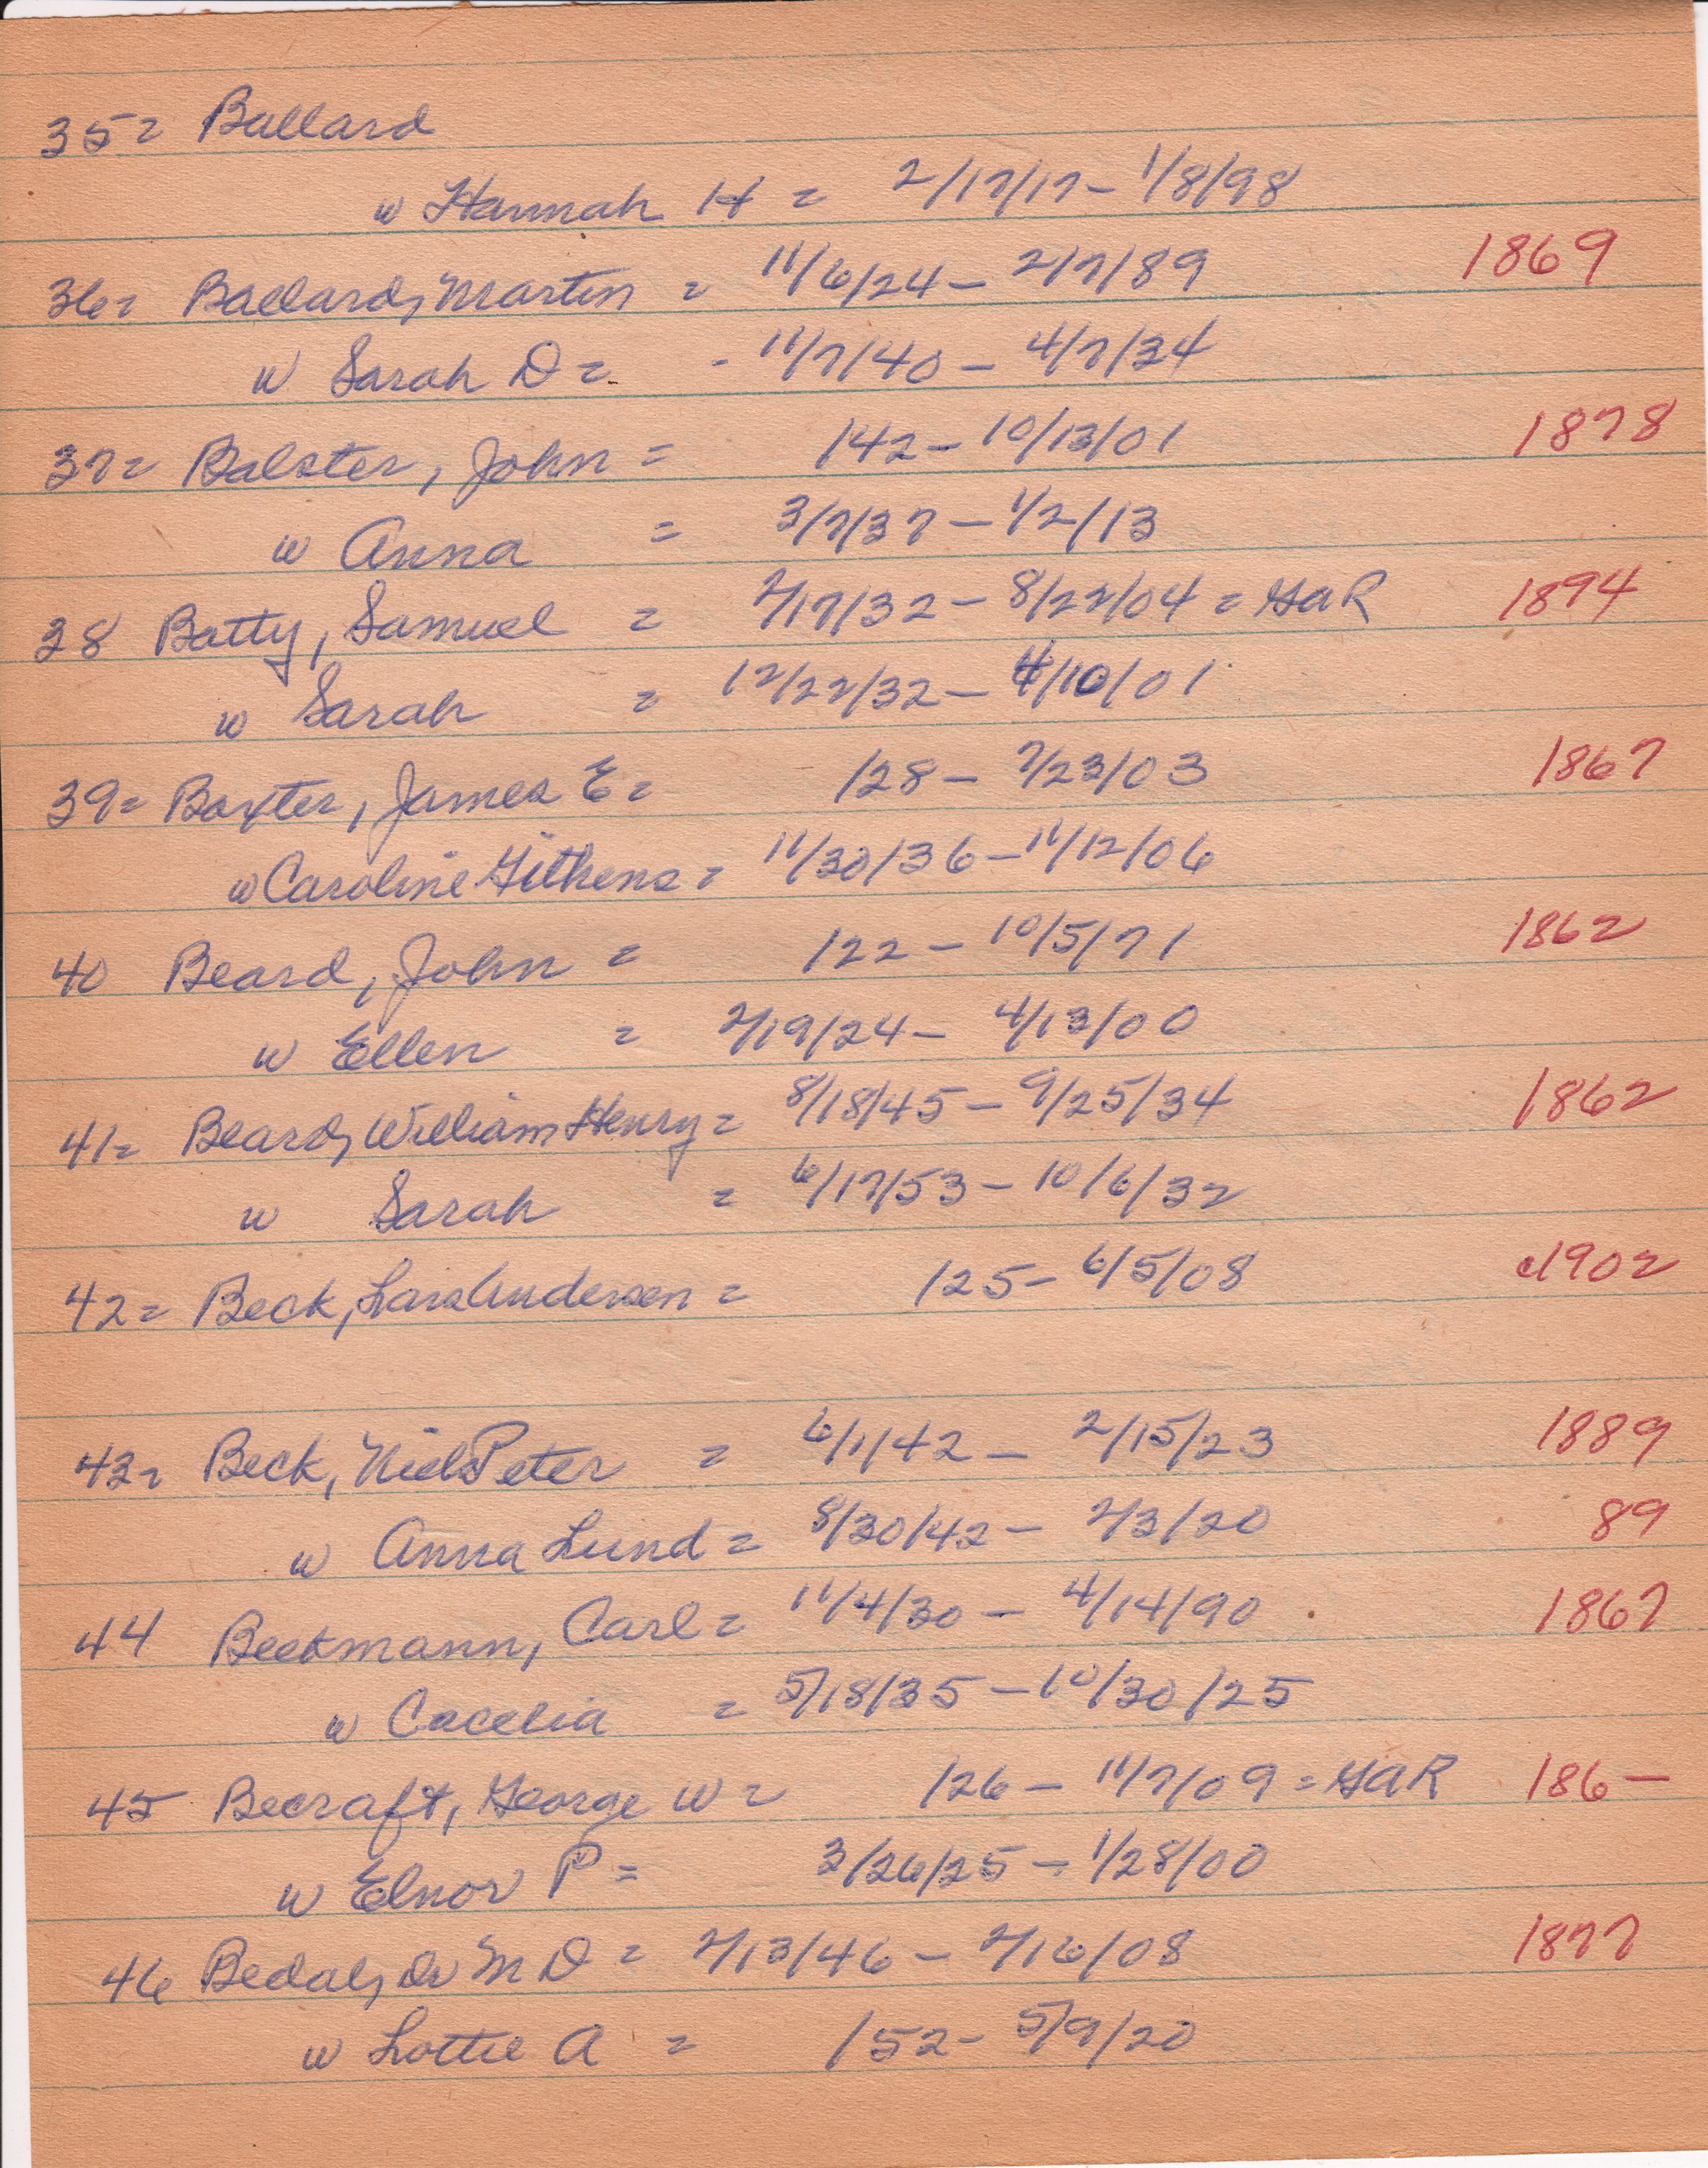 35= Ballard
w Hannah H = 2/17/17 - 1/8/98
36= Ballard, Martin = 11/6/24 - 2/7/89 1869
w Sarah D = - 11/7/40 - 4/7/34
37= Balster, John = /42 - 10/13/01 1878
w Anna = 3/7/37 - 1/2/13
38 Batty, Samuel = 2/17/32 - 8/22/04 = GAR 1894
w Sarah = 12/22/32 - 4/10/01
39= Baxter, James E = /28 - 7/23/03 1867
w Caroline Githens = 11/30/36 - 11/12/06
40 Beard, John = /22 - 10/5/71 1862
w Ellen = 2/19/24 - 4/13/00
41= Beard, William Henry = 8/18/45 - 9/25/34 1862
w Sarah = 6/17/53 - 10/6/32
42= Beck, Lars Andersen = /25 - 6/5/08 c1902
43= Beck, Niels Peter = 6/1/42 - 2/15/23 1889
w Anna Lund = 8/30/42 - 2/3/20 89
44 Beekmann, Carl = 11/4/30 - 4/14/90 1867
w Cacelia = 5/18/35 - 10/30/25
45 Becraft, George W = /26 - 11/7/09 = GAR 186-
w Elnor P = 3/26/25 - 1/28/00
46 Bedal, Dr M D = 2/13/46 - 2/16/08 1877
w Lottie A = /52 - 5/9/20